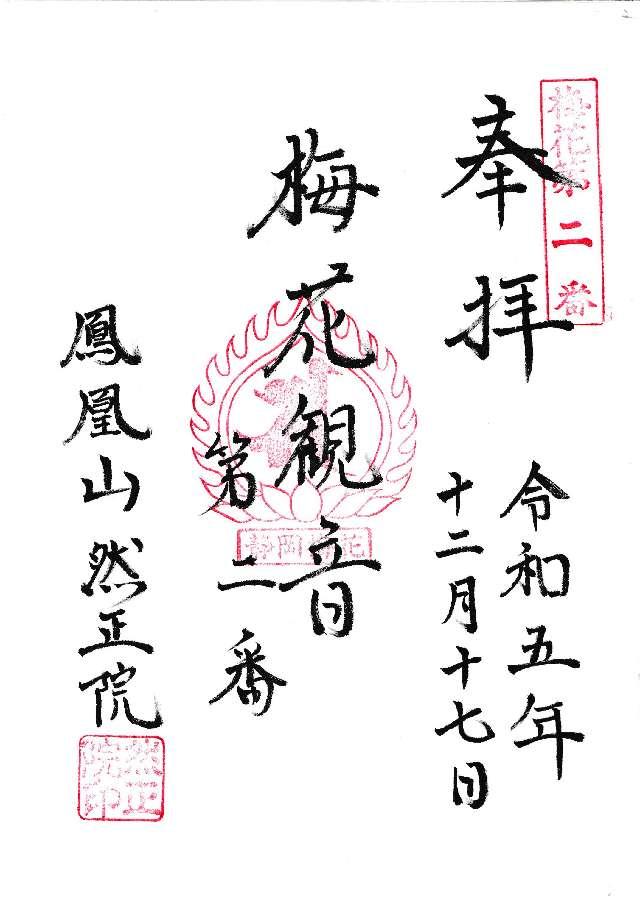 梅花第二番
奉拝
令和五年
十二月十七日
梅花観音
第二番
静岡梅花
鳳凰山然正院
然正院印